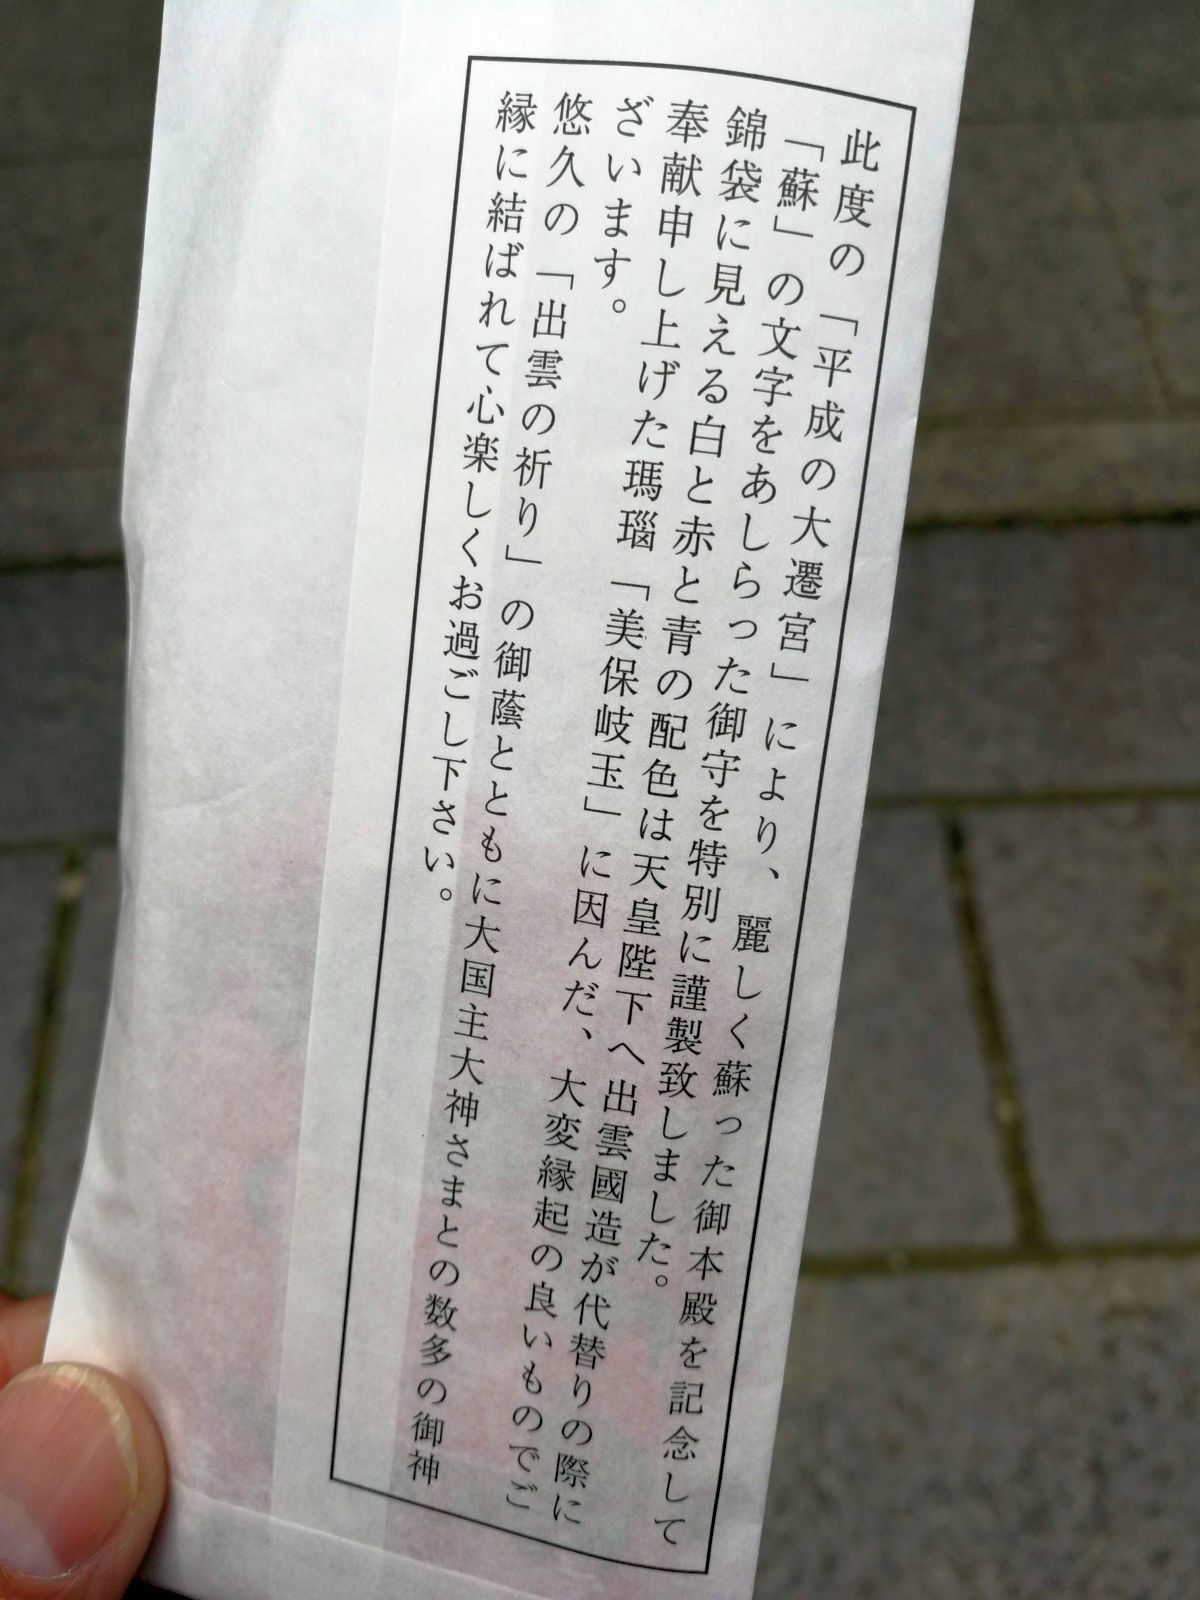 此度の「平成の大遷宮」により、麗しく蘇った御本殿を記念して
「蘇」の文字をあしらった御守を特別に謹製致しました。
錦袋に見える白と赤と青の配色は天皇陛下へ出雲國造が代替りの際に
奉献申し上げた瑪瑙「美保岐玉」に因んだ、大変縁起の良いものでご
ざいます。
悠久の「出雲の祈り」の御蔭とともに大国主大神さまとの数多の御神
縁に結ばれて心楽しくお過ごし下さい。